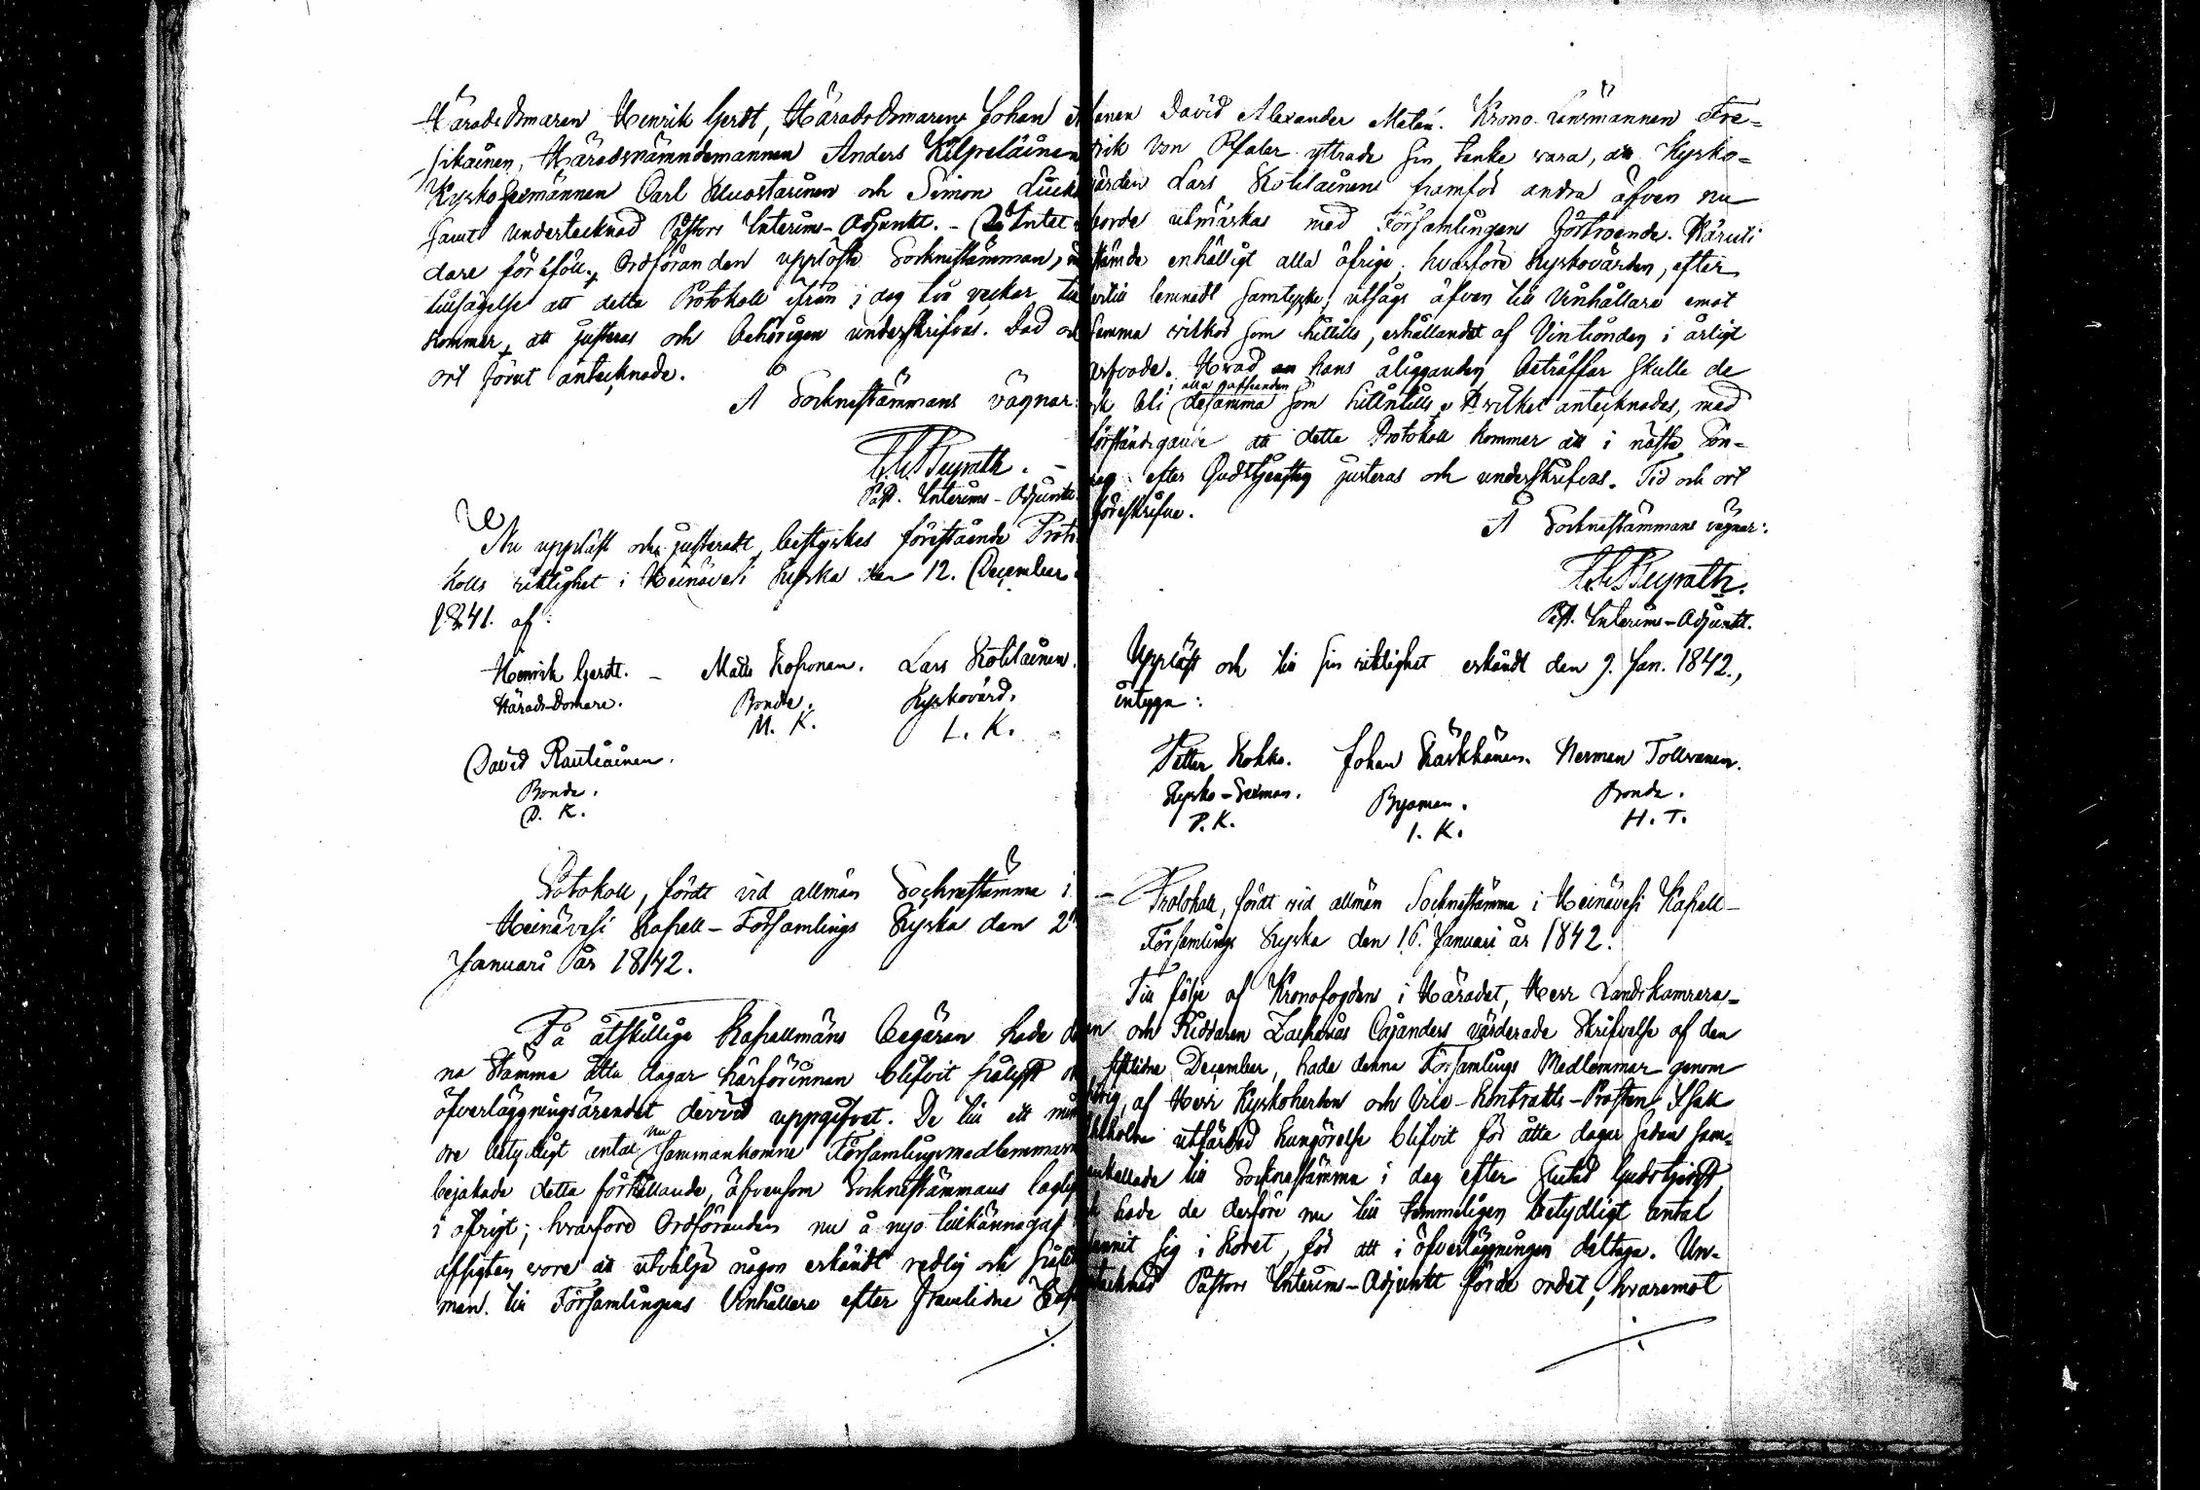 Härads Domaren Henrik Gerdt, Härads Domarene Johan
sikainen, Häradsnämndemannen Anders Kilpeläinen
Kyrko Sexmännen Carl Kuostarinen och Simon
samt undertecknad Pastors Interims-Adjunkt. - Då Intet
dare föreföll, Ordföranden upplöste Socknestämman,
tillsägelse att detta Protokoll ifrån i dag två veckor
kommer, att justeras och behörigen underskrifvas. Dad
ort förut antecknade.
Å Socknestämmans vägnar
Past. Interims-Adjunkt
Nu uppläst och justeradt, bestyrkes förestående Proto
kolls riktighet i Heinävesi Kyrka den 12. December
1841. af:
Henrik Gerdt. - Matts Kosonen. Lars Kotilainen.
Härads-Domare. Bonde. Kyrkovärd.
M. K. L. K.
David Rautiainen.
Bonde.
D. K.
Protokoll, fördt vid allmän Socknestämma i
Heinävesi Kapell-Församlings Kyrka den 2
Januari år 1842.
På åtskillige Kapellmäns begäran hade
na Stämma åtta dagar härförinnan blifvit pålyst
öfverläggningsärendet dervid uppgifvet. De till ett
dre betydligt antal nu sammankomne Församlingsmedlemmarne
bejakade detta förhållande, äfvensom Socknestämmans
i öfrigt; hvarföre Ordföranden nu å nyo tillkännagaf
afsigten vore att utvälja någon erkändt redlig och
man till Församlingens Vinhållare efter framlidne
anen David Alexander Matén. Krono Länsmannen Fre-
drik von Pfaler yttrade sin tanke vara, att Kyrko-
värden Lars Kotilainen framför andra äfven nu
borde utmärkas med Församlingens förtroende. Häruti
stämde enhälligt alla öfrige; hvarföre Kyrkovärden, efter
lemnadt samtycke, utsågs äfven till Vinhållare emot
samma vilkor som hittills, erhållandet af Vintionden i årligt
arfvode. Hvad hans åligganden beträffar skulle de
bli i alla afseenden desamma som hittintills. Hvilket antecknades, med
förständigande att detta Protokoll kommer att i nästa Sön-
dag efter Gudstjensten justeras och underskrifvas. Tid och ort
föreskrifne.
Å Socknestämmans vägnar:
Past. Interims-Adjunkt.
Uppläst och till sin riktighet erkändt den 9. Jan. 1842.,
intyga:
Petter Kokko. Johan Kärkkänen. Herman Tollvanen.
Kyrko-Sexman. Byaman. Bonde.
P. K. I. K. H. T.
Protokoll, fördt vid allmän Socknestämma i Heinävesi Kapell-
Församlings Kyrka den 16. Januari år 1842.
Till följe af Kronofogden i Häradet, Herr Landskamrera-
ren och Riddaren Zacharias Cajanders värderade Skrifvelse af den
sistlidne December, hade denna Församlings Medlemmar genom
af Herr Kyrkoherden och Vice-Kontrakts-Prosten Isak
utfärdad kungörelse blifvit för åtta dagar sedan sam-
mankallade till Socknestämma i dag efter slutad Gudstjenst
hade de derföre nu till temmeligen betydligt antal
sig i Koret, för att i öfverläggningen deltaga. Un-
dertecknad Pastors Interims-Adjunkt förde ordet, hvaremot